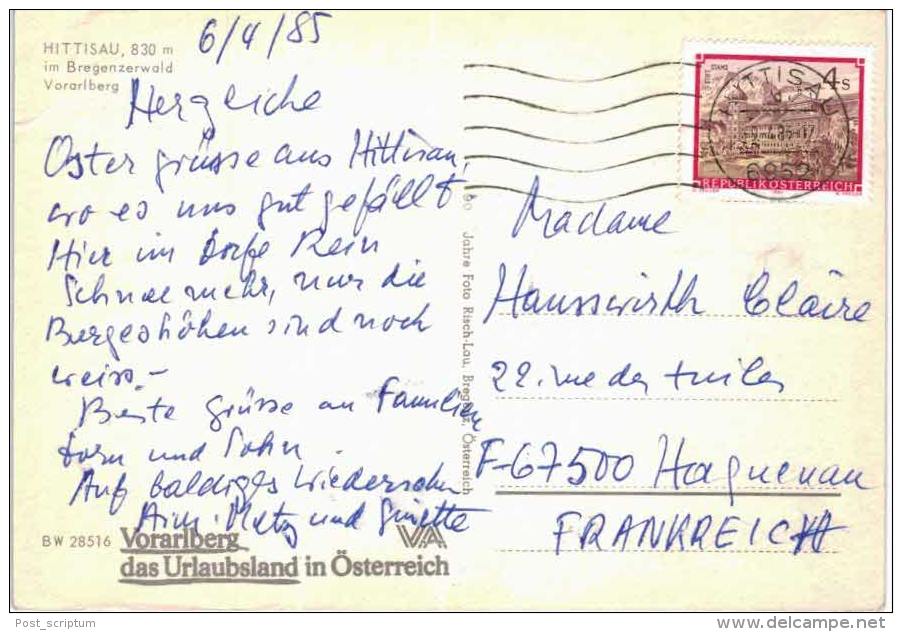 HITTISAU, 830 m
im Bregenzerwald
Vorarlberg
6/4/85
Herzliche
Oster grüsse aus Hittisau,
wo es uns gut gefällt.
Hier im Dorfe kein
Schnee mehr, nur die
Bergeshöhen sind noch
weiss.-
Beste Grüsse an Familien
und Sohn.
Auf baldiges Wiedersehn
Metz und Ginette
BW 28516
Vorarlberg
das Urlaubsland in Österreich
VA
Jahre Foto Risch-Lau, Bregenz, Österreich
STAMS
4 S
HITTISAU
6952
REPUBLIK ÖSTERREICH
Madame
Hausswirth Claire
22. rue des tuiles
F-67500 Haguenau
FRANKREICH
Post_scriptum
delcampe.net